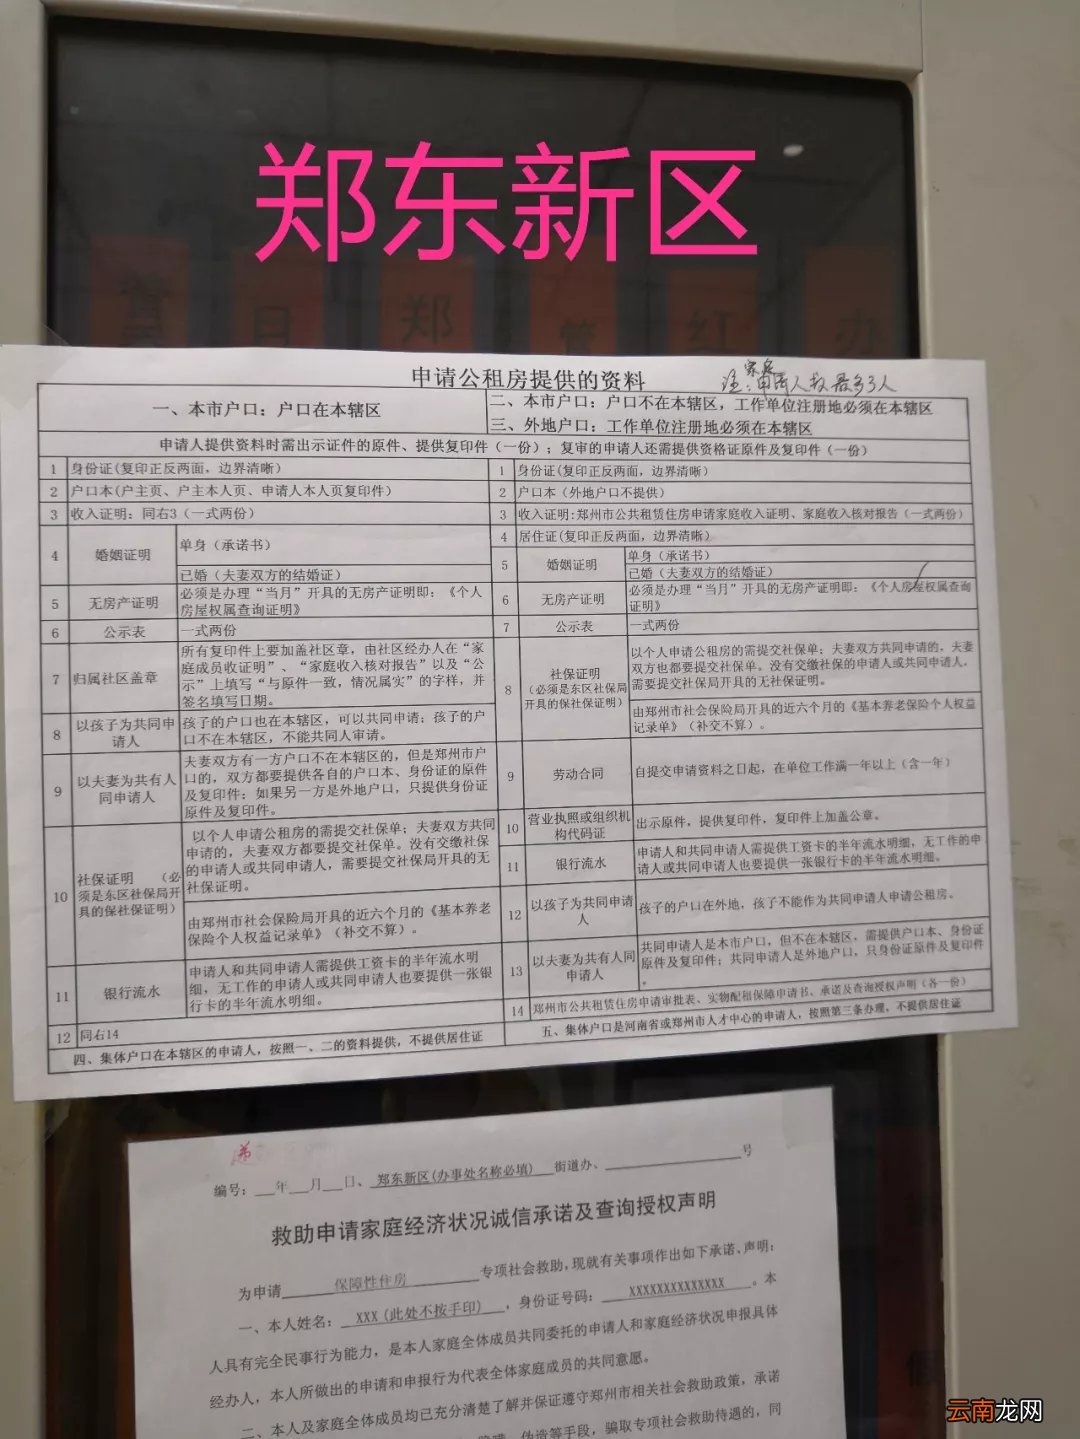 郑东新区
郑
管
红
办
申请公租房提供的资料
注:家庭申请人数最多3人
一、本市户口：户口在本辖区
二、本市户口：户口不在本辖区，工作单位注册地必须在本辖区
三、外地户口：工作单位注册地必须在本辖区
申请人提供资料时需出示证件的原件、提供复印件（一份）；复审的申请人还需提供资格证原件及复印件（一份）
1 身份证(复印正反两面，边界清晰）
2 户口本(户主页、户主本人页、申请人本人页复印件）
3 收入证明：同右3（一式两份）
4 婚姻证明
单身（承诺书）
已婚（夫妻双方的结婚证）
5 无房产证明
必须是办理“当月”开具的无房产证明即：《个人
房屋权属查询证明》
6 公示表 一式两份
7 归属社区盖章
所有复印件上要加盖社区章，由社区经办人在“家
庭成员收证明”、“家庭收入核对报告”以及“公
示”上填写“与原件一致，情况属实”的字样，并
签名填写日期。
8 以孩子为共同申
请人
孩子的户口也在本辖区，可以共同申请；孩子的户
口不在本辖区，不能共同人审请。
9 以夫妻为共有人
同申请人
夫妻双方有一方户口不在本辖区的，但是郑州市户
口的，双方都要提供各自的户口本、身份证的原件
及复印件；如果另一方是外地户口，只提供身份证
原件及复印件。
10 社保证明 （必
须是东区社保局开
具的保社保证明）
以个人申请公租房的需提交社保单；夫妻双方共同
申请的，夫妻双方都要提交社保单。没有交缴社保
的申请人或共同申请人，需要提交社保局开具的无
社保证明。
由郑州市社会保险局开具的近六个月的《基本养老
保险个人权益记录单》（补交不算）。
11 银行流水
申请人和共同申请人需提供工资卡的半年流水明
细，无工作的申请人或共同申请人也要提供一张银
行卡的半年流水明细。
12 同右14
四、集体户口在本辖区的申请人，按照一、二的资料提供，不提供居住证
1 身份证(复印正反两面，边界清晰）
2 户口本（外地户口不提供）
3 收入证明:郑州市公共租赁住房申请家庭收入证明、家庭收入核对报告（一式两份）
4 居住证(复印正反两面，边界清晰）
5 婚姻证明
单身（承诺书）
已婚（夫妻双方的结婚证）
6 无房产证明
必须是办理“当月”开具的无房产证明即：《个人房屋权属查询
证明》
7 公示表 一式两份
8 社保证明
（必须是东区社保局
开具的保社保证明）
以个人申请公租房的需提交社保单；夫妻双方共同申请的，夫妻
双方也都要提交社保单。没有交缴社保的申请人或共同申请人，
需要提交社保局开具的无社保证明。
由郑州市社会保险局开具的近六个月的《基本养老保险个人权益
记录单》（补交不算）。
9 劳动合同 自提交申请资料之日起，在单位工作满一年以上（含一年）
10 营业执照或组织机
构代码证
出示原件，提供复印件，复印件上加盖公章。
11 银行流水
申请人和共同申请人需提供工资卡的半年流水明细，无工作的申
请人或共同申请人也要提供一张银行卡的半年流水明细。
12 以孩子为共同申请
人
孩子的户口在外地，孩子不能作为共同申请人申请公租房。
13 以夫妻为共有人同
申请人
共同申请人是本市户口，但不在本辖区，需提供户口本、身份证
原件及复印件；共同申请人是外地户口，只身份证原件及复印件
。
14 郑州市公共租赁住房申请审批表、实物配租保障申请书、承诺及查询授权声明（各一份）
五、集体户口是河南省或郑州市人才中心的申请人，按照第三条办理，不提供居住证
编号：___年___月___日、郑东新区(办事处名称必填)街道办、____号
救助申请家庭经济状况诚信承诺及查询授权声明
为申请 保障性住房 专项社会救助，现就有关事项作出如下承诺、声明：
一、本人姓名：XXX(此处不按手印)，身份证号码：XXXXXXXXXXXXXX。本
人具有完全民事行为能力，是本人家庭全体成员共同委托的申请人和家庭经济状况申报具体
经办人，本人所做出的申请和申报行为代表全体家庭成员的共同意愿。
二、本人及家庭全体成员均已充分清楚了解并保证遵守郑州市相关社会救助政策，承诺
伪造等手段，骗取专项社会救助待遇的，同
云南龙网